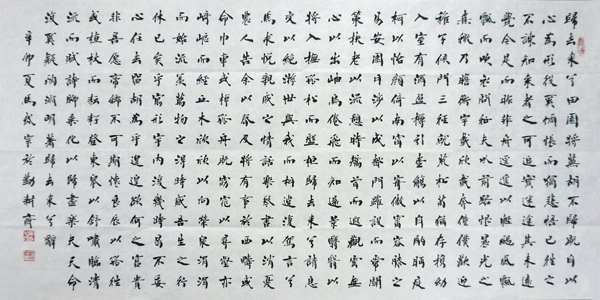 歸去來兮田園將蕪胡不歸既自以
心為形役奚惆悵而獨悲悟已往之
不諫知來者之可追實迷途其未遠
覺今是而昨非舟遙遙以輕颺風飄
飄而吹衣問征夫以前路恨晨光之
熹微乃瞻衡宇載欣載奔僮僕歡迎
稚子候門三徑就荒松菊猶存攜幼
入室有酒盈樽引壺觴以自酌眄庭
柯以怡顏倚南窗以寄傲審容膝之
易安園日涉以成趣門雖設而常關
策扶老以流憩時矯首而遐觀雲無
心以出岫鳥倦飛而知還景翳翳以
將入撫孤松而盤桓歸去來兮請息
交以絕遊世與我而相違復駕言兮
焉求悅親戚之情話樂琴書以消憂
農人告余以春及將有事於西疇或
命巾車或棹孤舟既窈窕以尋壑亦
崎嶇而經丘木欣欣以向榮泉涓涓
而始流羨萬物之得時感吾生之行
休已矣乎寓形宇內復幾時曷不委
心任去留胡為遑遑欲何之富貴
非吾願帝鄉不可期懷良辰以孤往
或植杖而耘耔登東皋以舒嘯臨清
流而賦詩聊乘化以歸盡樂夫天命
復奚疑陶淵明著歸去來兮辭
辛卯夏馬成宇於勤耕齋